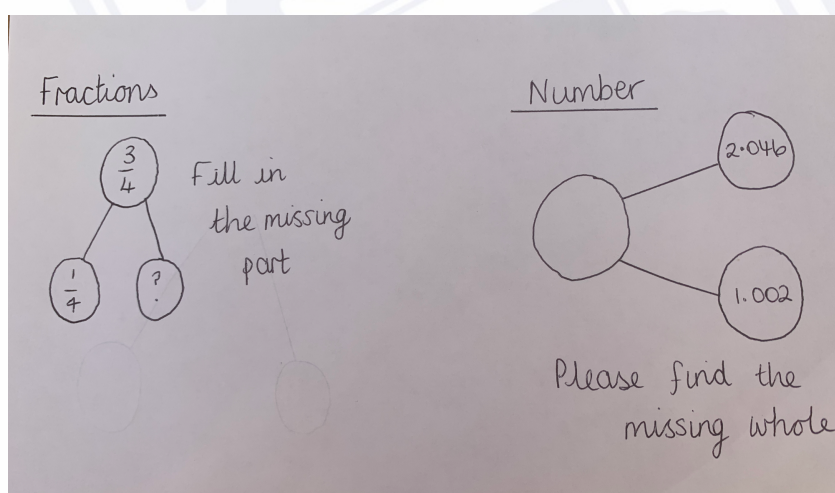 Fractions
3
4
1
4
?
Fill in
the missing
part
Number
2.046
1.002
Please find the
missing whole